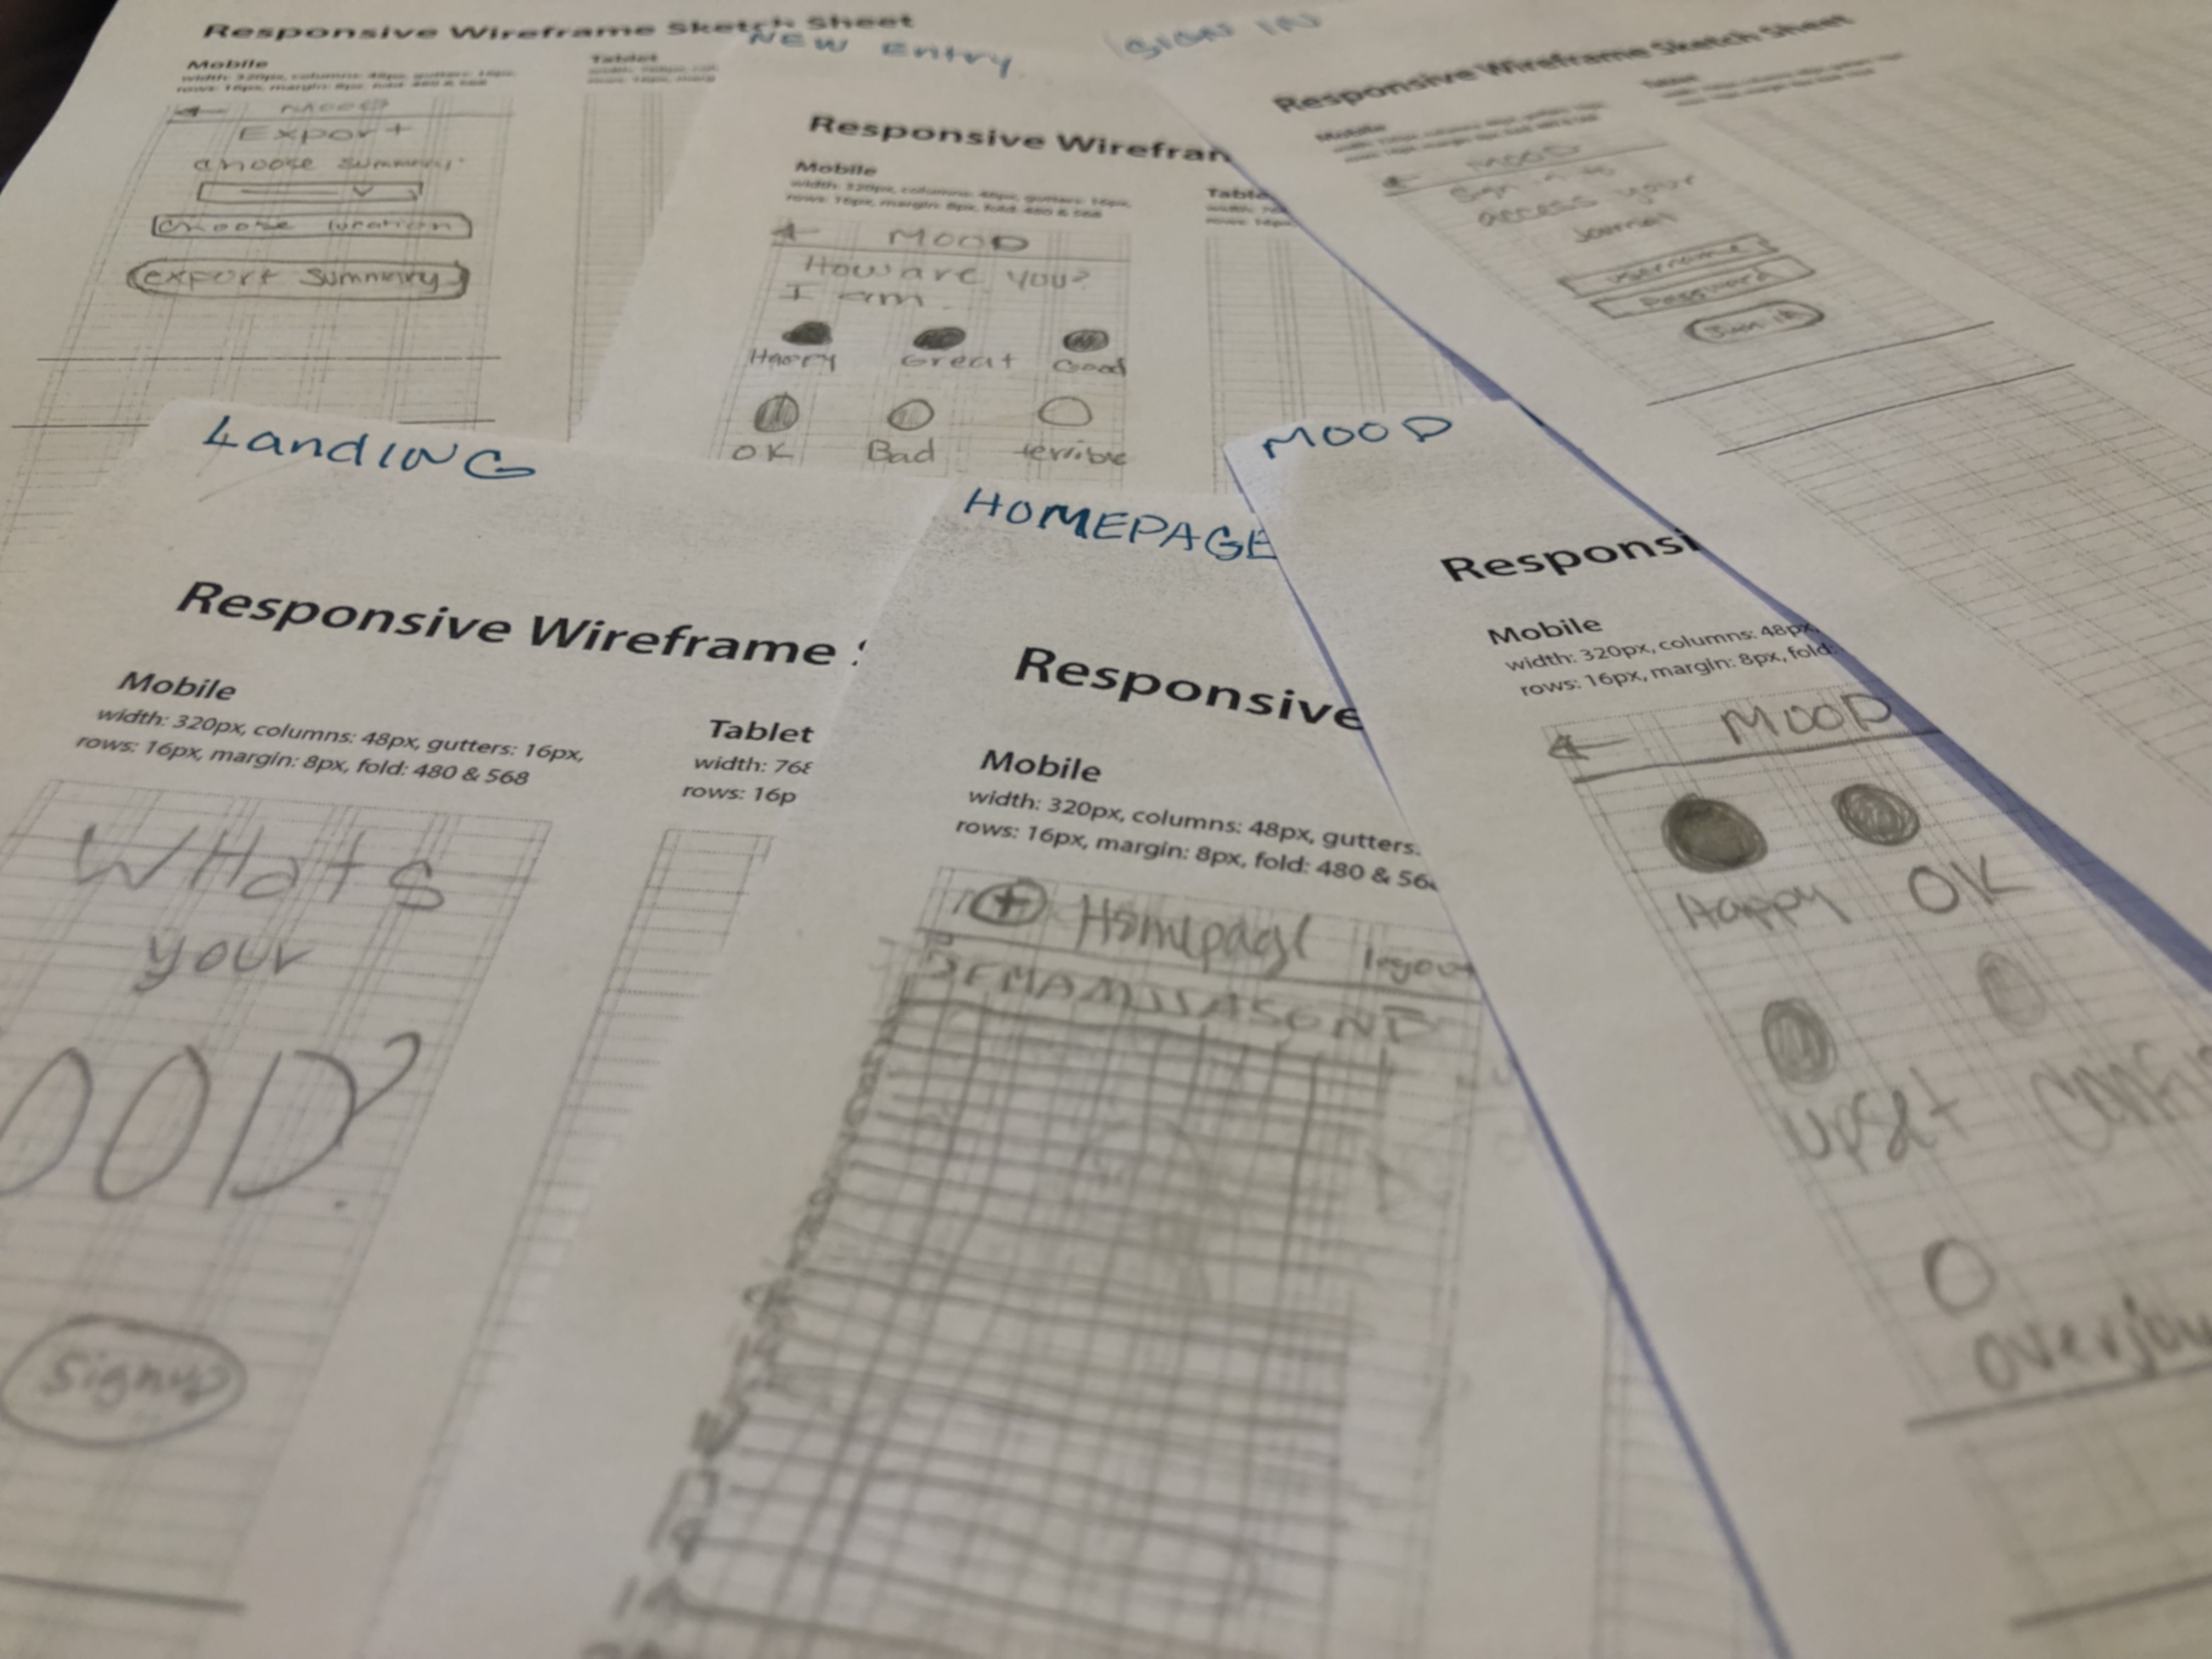 Responsive Wireframe Sketch Sheet
Mobile
width: 320px, columns: 48px, gutters: 16px,
rows: 16px, margin: 8px, fold: 480 & 568
Tablet
MOOD
Export
choose summary
choose location
export summary
NEW Entry
Responsive Wirefran
Mobile
width: 320px, columns: 48px, gutters: 16px,
rows: 16px, margin: 8px, fold: 480 & 568
Table
MOOD
How are you?
I am
Happy Great Good
OK Bad terrible
SIGN IN
Responsive Wireframe Sketch Sheet
Mobile
Tablet
MOOD
Sign in to
access your
Journal
username
Password
Sign in
LandING
Responsive Wireframe
Mobile
width: 320px, columns: 48px, gutters: 16px,
rows: 16px, margin: 8px, fold: 480 & 568
Tablet
width: 768
rows: 16p
WHats
your
OOD?
Signup
HOMEPAGE
Responsive
Mobile
width: 320px, columns: 48px, gutters:
rows: 16px, margin: 8px, fold: 480 & 56
+ Homepage logout
JFMAMJJASOND
MOOD
Responsi
Mobile
width: 320px, columns: 48px,
rows: 16px, margin: 8px, fold:
MOOD
Happy OK
upset
overjoy